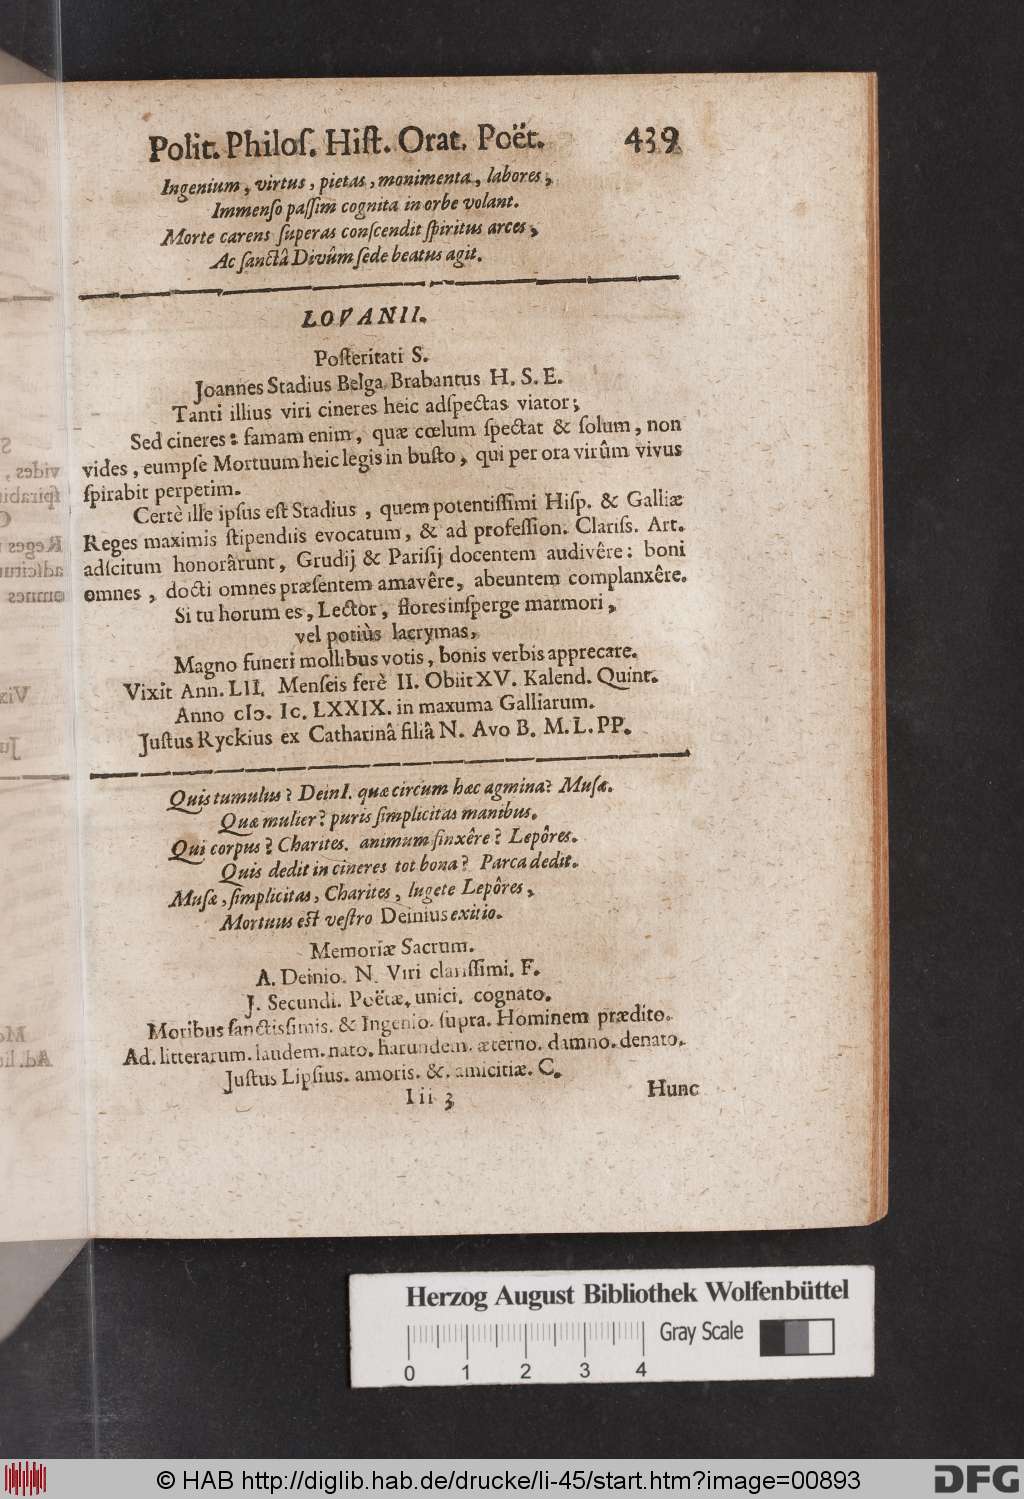 Polit. Philoſ. Hiſt. Orat. Poët. 439
Ingenium, virtus, pietas, monimenta, labores,
Immenſo paſſim cognita in orbe volant.
Morte carens ſuperas conſcendit ſpiritus arces,
Ac ſanctâ Divûm ſede beatus agit.
LOVANII.
Poſteritati S.
Joannes Stadius Belga Brabantus H. S. E.
Tanti illius viri cineres heic adſpectas viator;
Sed cineres: famam enim, quæ cœlum ſpectat & ſolum, non
vides, eumpſe Mortuum heic legis in buſto, qui per ora virûm vivus
ſpirabit perpetim.
Certè ille ipſus eſt Stadius, quem potentiſſimi Hiſp. & Galliæ
Reges maximis ſtipendiis evocatum, & ad profeſſion. Clariſs. Art.
adſcitum honorârunt, Grudij & Pariſij docentem audivêre: boni
omnes, docti omnes præſentem amavêre, abeuntem complanxêre.
Si tu horum es, Lector, flores inſperge marmori,
vel potiùs lacrymas,
Magno funeri mollibus votis, bonis verbis apprecare.
Vixit Ann. LII. Menſeis ferè II. Obiit XV. Kalend. Quint.
Anno cIↄ. Ic. LXXIX. in maxuma Galliarum.
Juſtus Ryckius ex Catharinâ filiâ N. Avo B. M. L. PP.
Quis tumulus? DeinI. quæ circum hæc agmina? Muſæ.
Quæ mulier? puris ſimplicitas manibus.
Qui corpus? Charites. animum finxêre? Lepôres.
Quis dedit in cineres tot bona? Parca dedit.
Muſæ, ſimplicitas, Charites, lugete Lepôres,
Mortuus eſt veſtro Deinius exitio.
Memoriæ Sacrum.
A. Deinio. N. Viri clariſſimi. F.
J. Secundi. Poëtæ. unici. cognato.
Moribus ſanctisſimis. & Ingenio. ſupra. Hominem prædito.
Ad. litterarum. laudem. nato. harundem. æterno. damno. denato.
Juſtus Lipſius. amoris. &. amicitiæ. C.
Iii 3 Hunc
Herzog August Bibliothek Wolfenbüttel
Gray Scale
0 1 2 3 4
© HAB http://diglib.hab.de/drucke/li-45/start.htm?image=00893
DFG